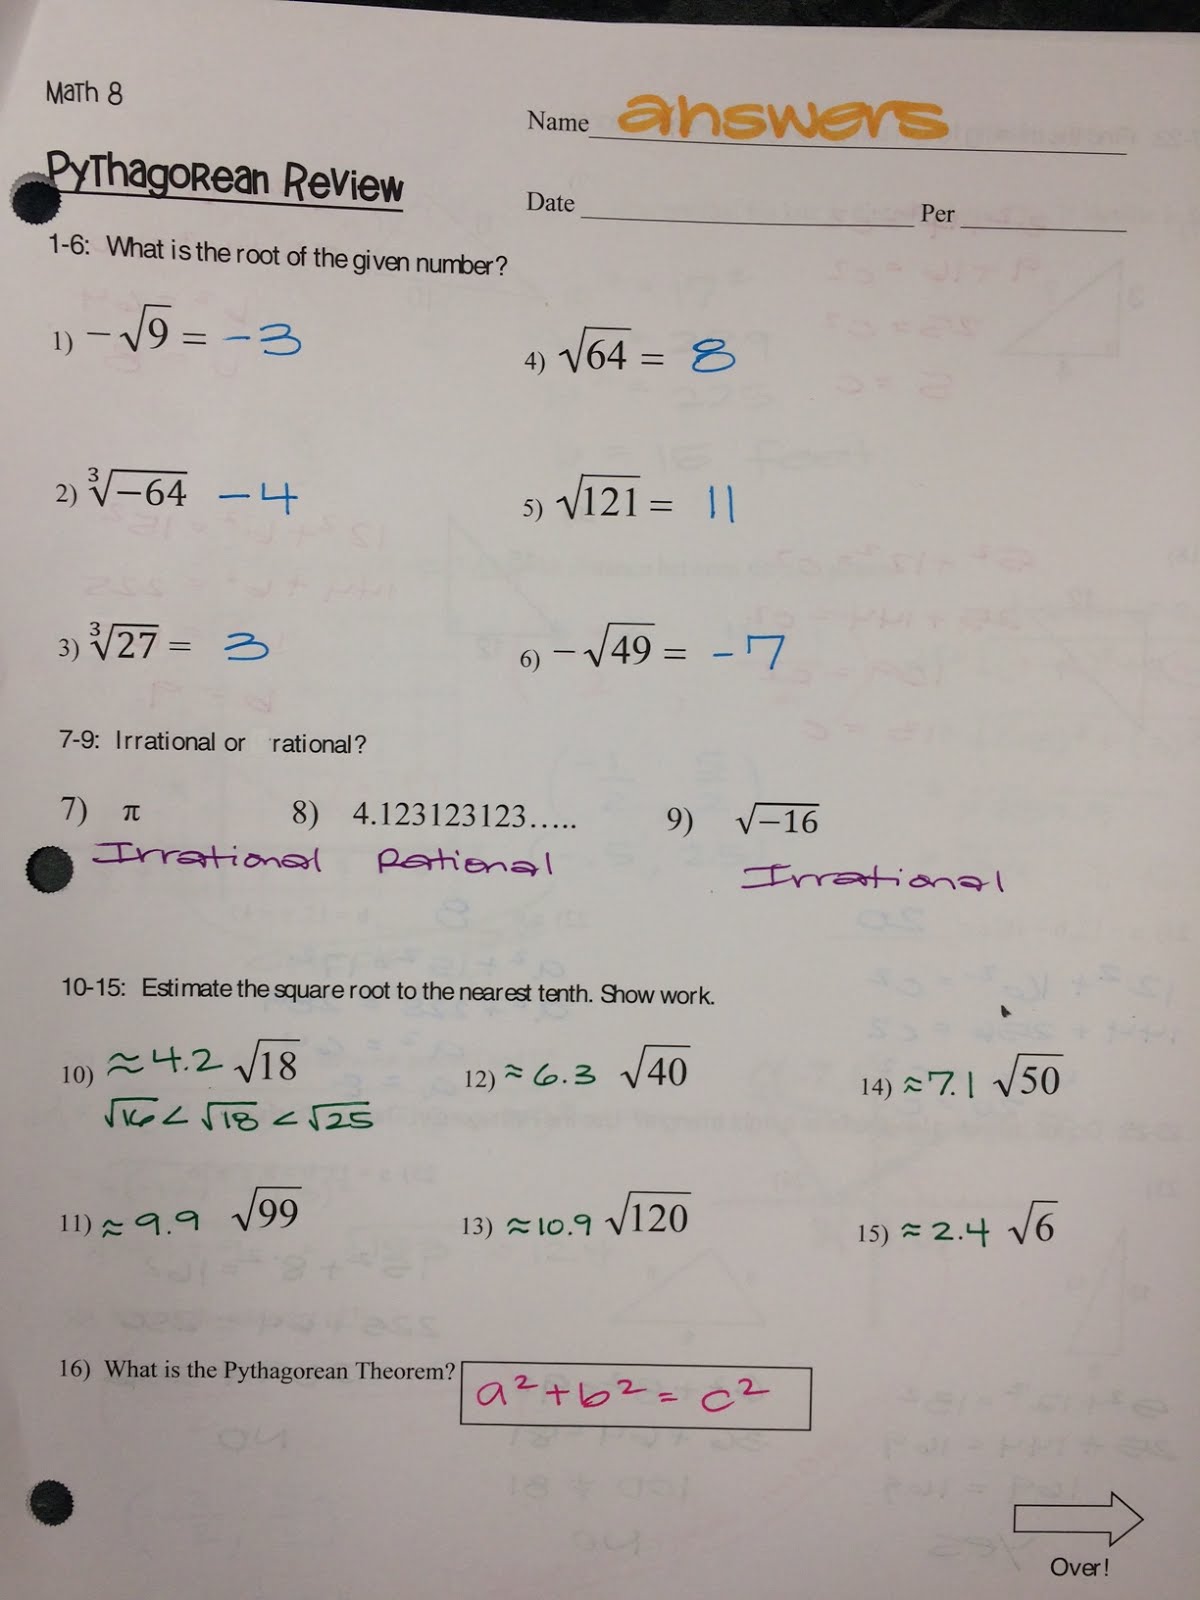 Math 8
Name answers
Pythagorean Review
Date ____ Per ____
1-6: What is the root of the given number?
1) -√9 = -3
4) √64 = 8
2) ∛-64 -4
5) √121 = 11
3) ∛27 = 3
6) -√49 = -7
7-9: Irrational or rational?
7) π 8) 4.123123123..... 9) √-16
Irrational Rational Irrational
10-15: Estimate the square root to the nearest tenth. Show work.
10) ≈4.2 √18
√16 < √18 < √25
12) ≈ 6.3 √40
14) ≈7.1 √50
11) ≈ 9.9 √99
13) ≈10.9 √120
15) ≈ 2.4 √6
16) What is the Pythagorean Theorem? a²+b² = c²
Over!